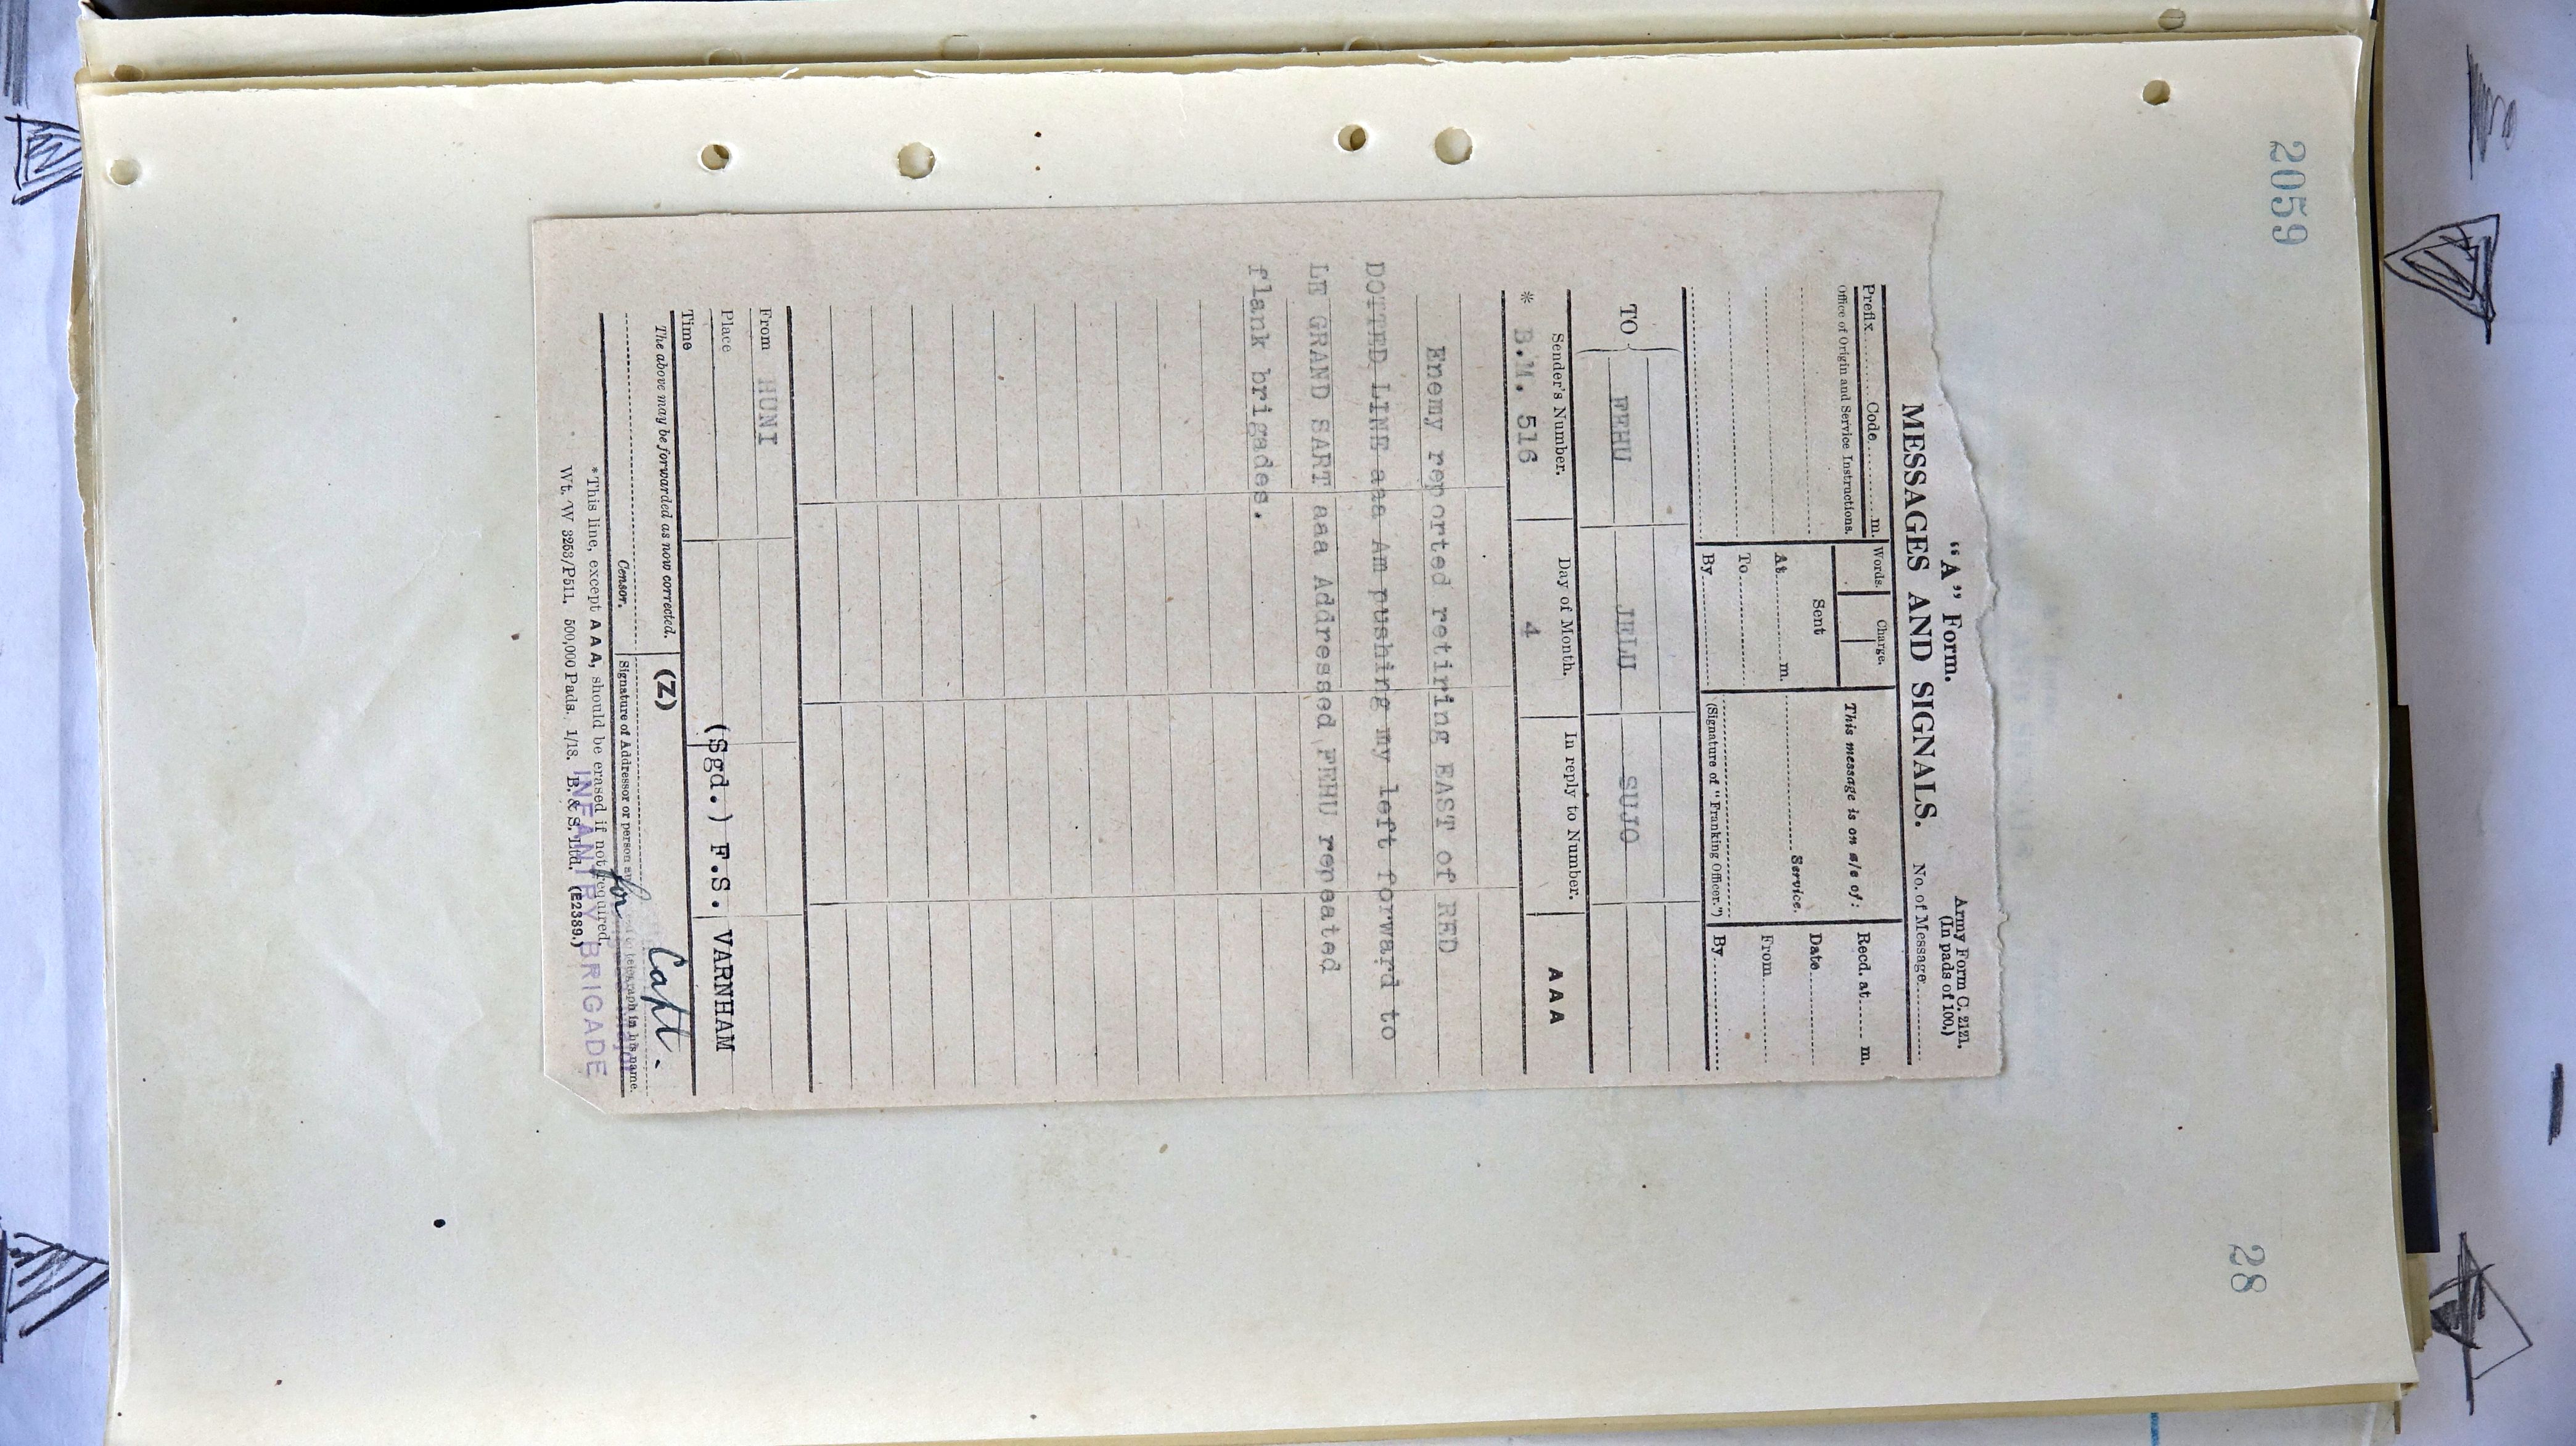 2059
28
"A" Form.
Army Form C. 2121.
(In pads of 100.)
MESSAGES AND SIGNALS.
No. of Message
Prefix Code m.
Words. Charge.
This message is on a/c of:
Recd. at m.
Office of Origin and Service Instructions.
Sent
At m.
Service.
Date
To
From
By
(Signature of "Franking Officer.")
By
TO FEHU JELU SUJO
Sender's Number. Day of Month. In reply to Number. AAA
* B.M. 516 4
Enemy reported retiring EAST of RED
DOTTED LINE aaa Am pushing my left forward to
LE GRAND SART aaa Addressed FEHU repeated
flank brigades.
From HUNI
Place
(Sgd.) F.S. VARNHAM
Time
The above may be forwarded as now corrected. (Z)
Capt.
for
Censor. Signature of Addressor or person in his name.
*This line, except AAA, should be erased if not required.
INFANTRY BRIGADE
Wt. W 3253/P511. 500,000 Pads. 1/18. B. & S. Ltd. (E2389.)